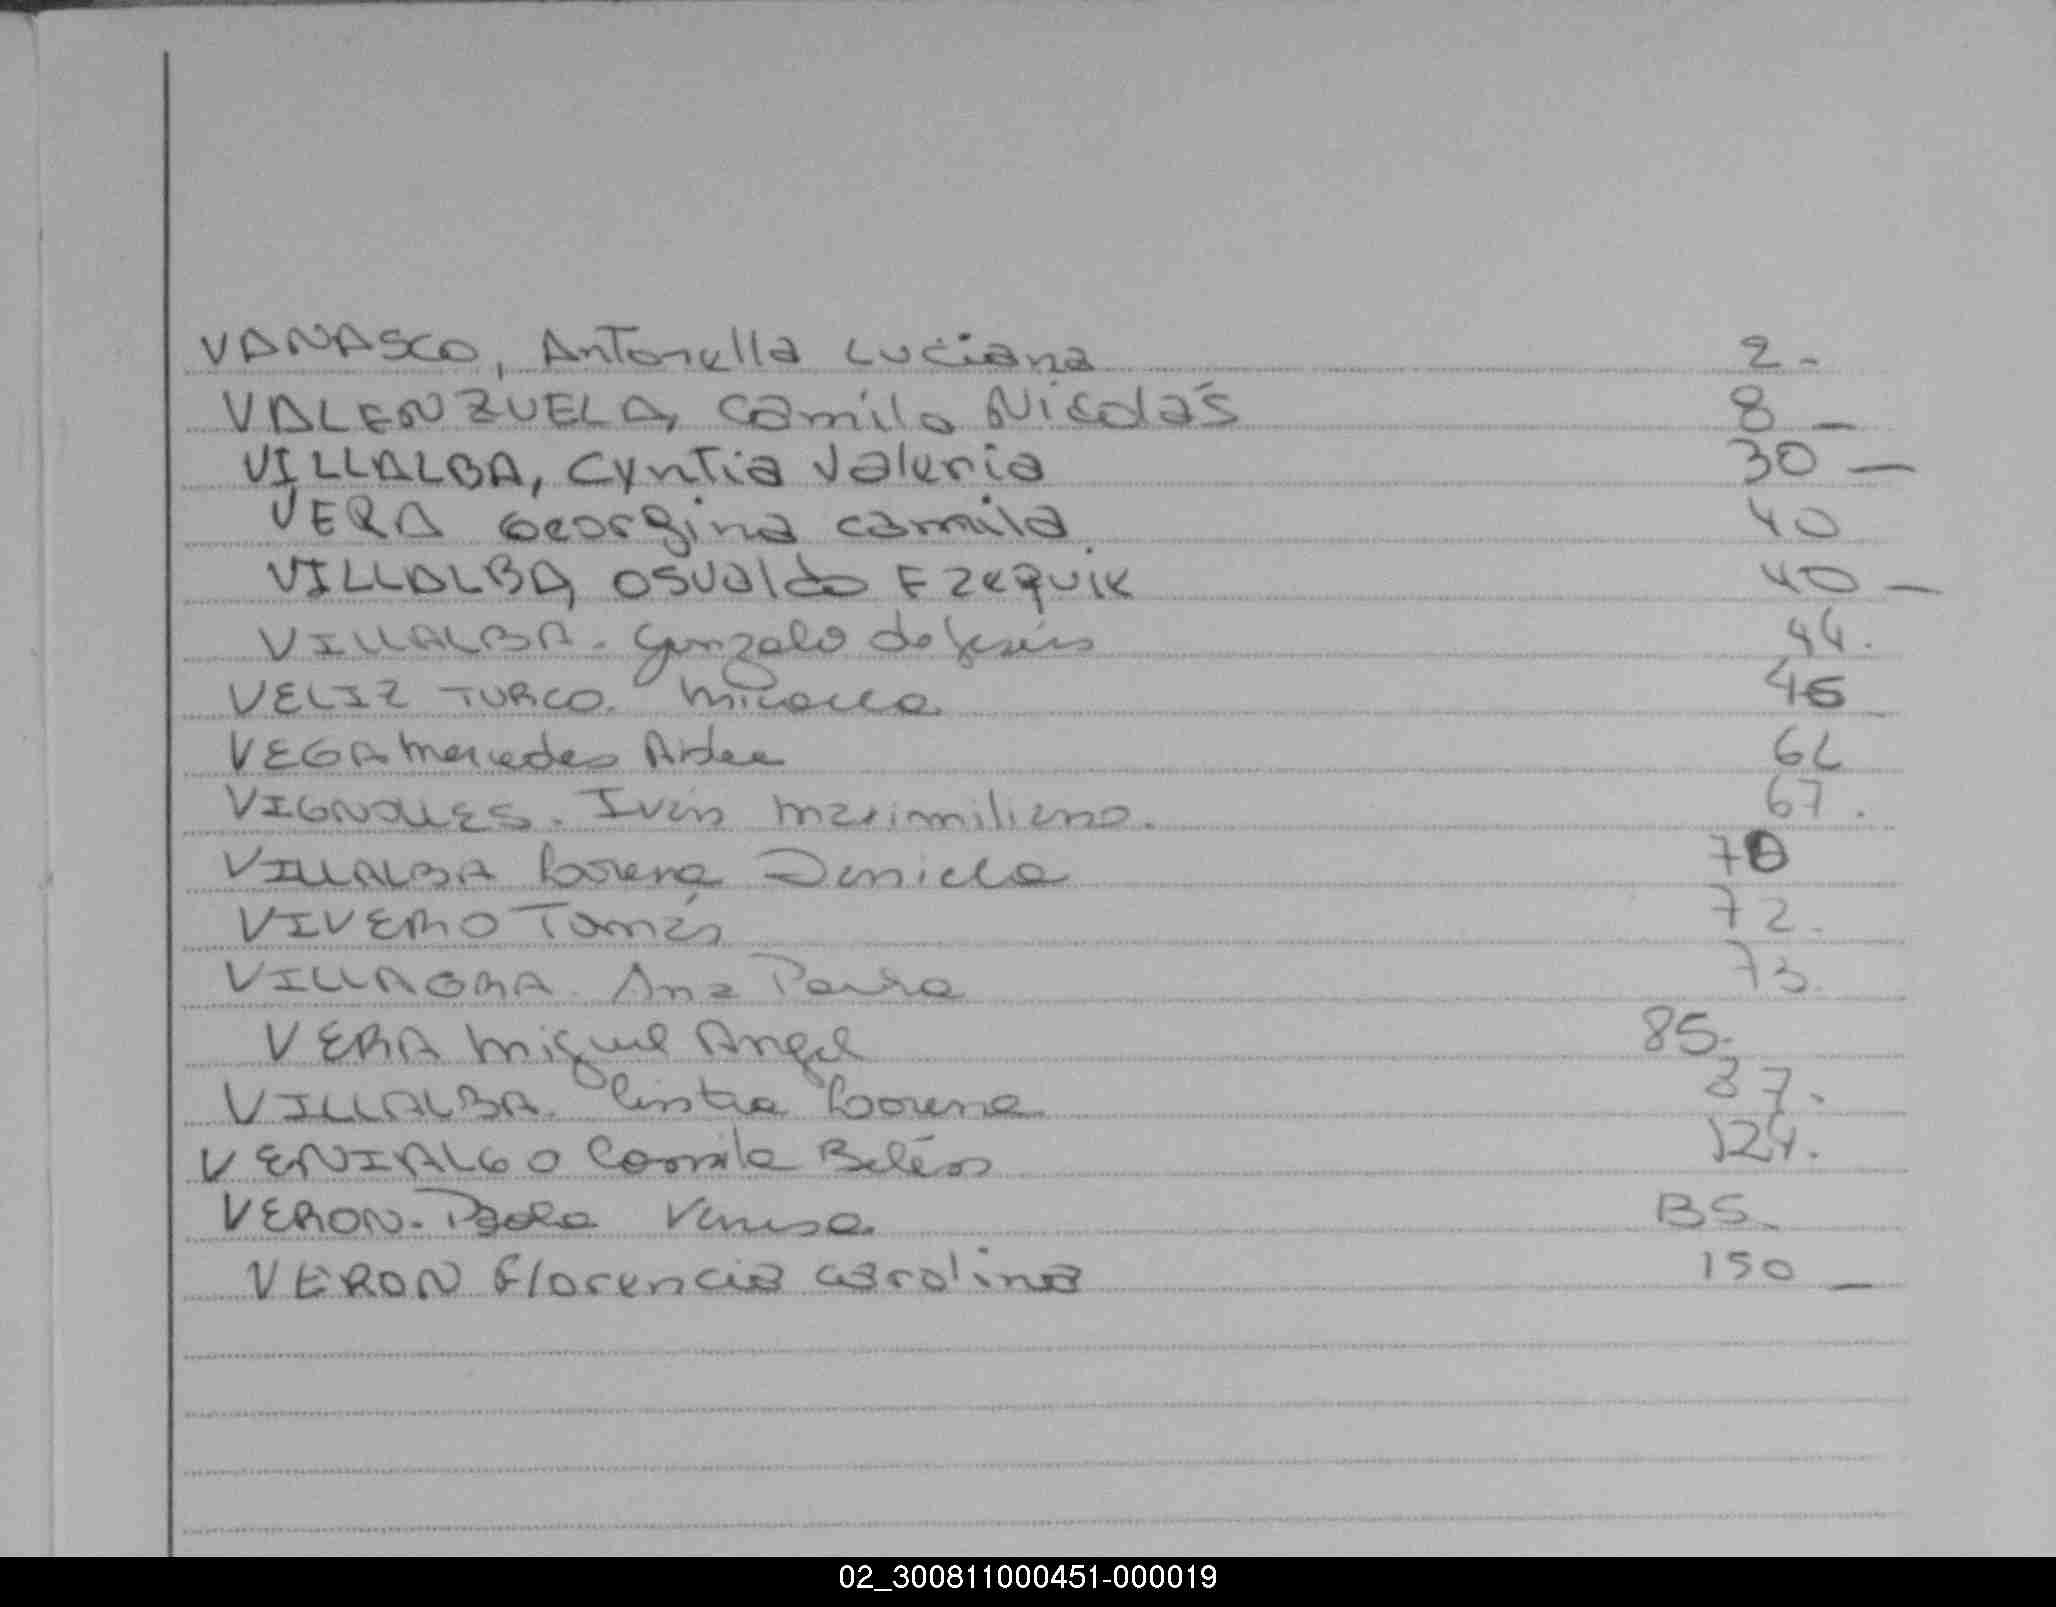 VANASCO, Antonella Luciana 2-
VALENZUELA, Camilo Nicolás 8 —
VILLALBA, Cyntia Valeria 30 —
VERA Georgina Camila. 40
VILLALBA, Osvaldo Ezequie 40 —
VILLALBA. Gonzalo de Jesús 44.
VELIZ TURCO. Micaela. 46
VEGA Mercedes Aidee 62
VIGNOLLES. Iván Maximiliano. 67.
VILLALBA Lorena Daniela 70
VIVERO Tomás 72.
VILLAGRA. Ana Paula 73.
VERA Miguel Angel 85.
VILLALBA. Cintia Lorena 87.
VENIALGO Camila Belén 124.
VERON. Paola Vanesa. 135.
VERON Florencia Carolina 150 —
02_300811000451-000019